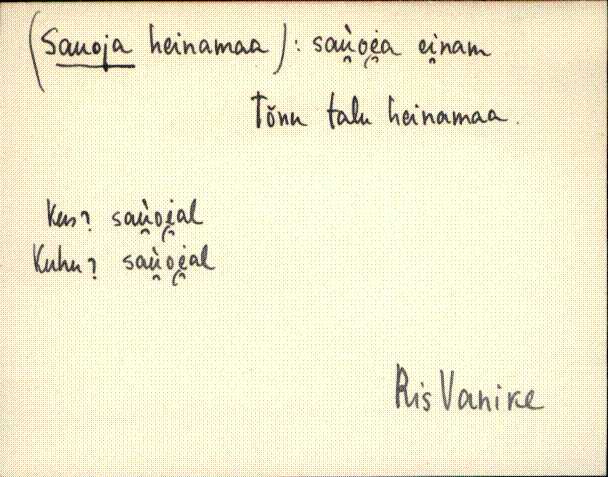 (Sauoja heinamaa): saù̯oi̯a ei̯nam
Tõnu talu heinamaa.
Kus? saù̯oi̯al
Kuhu? saù̯oi̯al
Ris Vanire